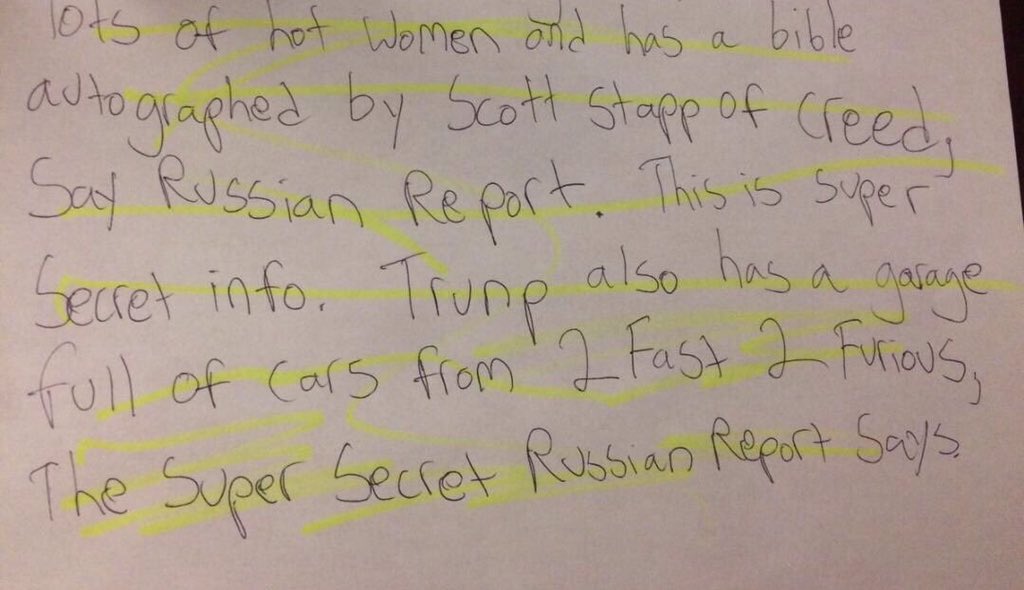 lots of hot women and has a bible
autographed by Scott Stapp of Creed,
Say Russian Report. This is super
Secret info. Trunp also has a garage
full of cars from 2 Fast 2 Furious,
The Super Secret Russian Report Says.